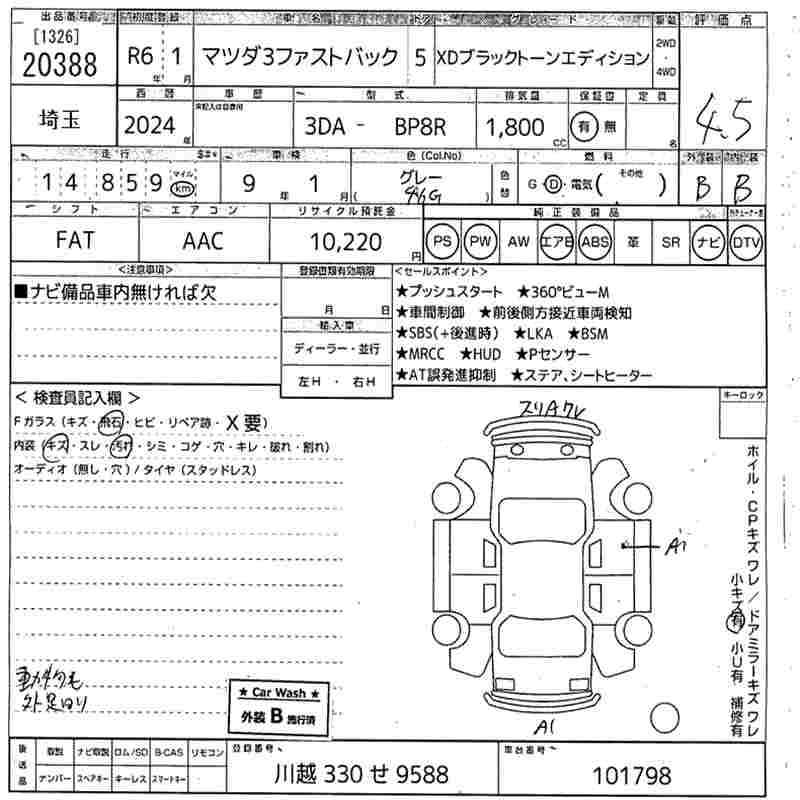 出品番号 初度登録 車名 ドア グレード 駆動 評価点
[1326]
20388 R6 1 マツダ3ファストバック 5 XDブラックトーンエディション 2WD・4WD
年 月
4.5
西暦 車歴 型式 排気量 保証書 定員
埼玉 2024年 3DA - BP8R 1,800 CC 有 無 名
走行 車検 色(Col.No) 燃料 外装 内装
14859 マイル km 9年 1月 グレー 46G 色替 G・D・電気( その他 ) B B
シフト エアコン リサイクル預託金 純正装備品
FAT AAC 10,220円 PS PW AW エアB ABS 革 SR ナビ DTV
<注意事項> 登録書類有効期限 <セールスポイント>
■ナビ備品車内無ければ欠
月 日
輸入車
ディーラー・並行
左H ・ 右H
★プッシュスタート ★360°ビューM
★車間制御 ★前後側方接近車両検知
★SBS(+後進時) ★LKA ★BSM
★MRCC ★HUD ★Pセンサー
★AT誤発進抑制 ★ステア、シートヒーター
キーロック
< 検査員記入欄 >
Fガラス(キズ・飛石・ヒビ・リペア跡・X要)
内装(キズ・スレ・汚れ・シミ・コゲ・穴・キレ・破れ・割れ)
オーディオ(無し・穴)/タイヤ(スタッドレス)
スリAワレ
A1
A1
ホイル・CPキズ ワレ/ドアミラーキズ ワレ
小キズ有 小U有 補修有
★ Car Wash ★
外装 B 施行済
後送品 取説 ナビ取説 ロム/SD B-CAS リモコン
ナンバー スペアキー キーレス スマートキー
登録番号
川越 330 せ 9588
車台番号
101798